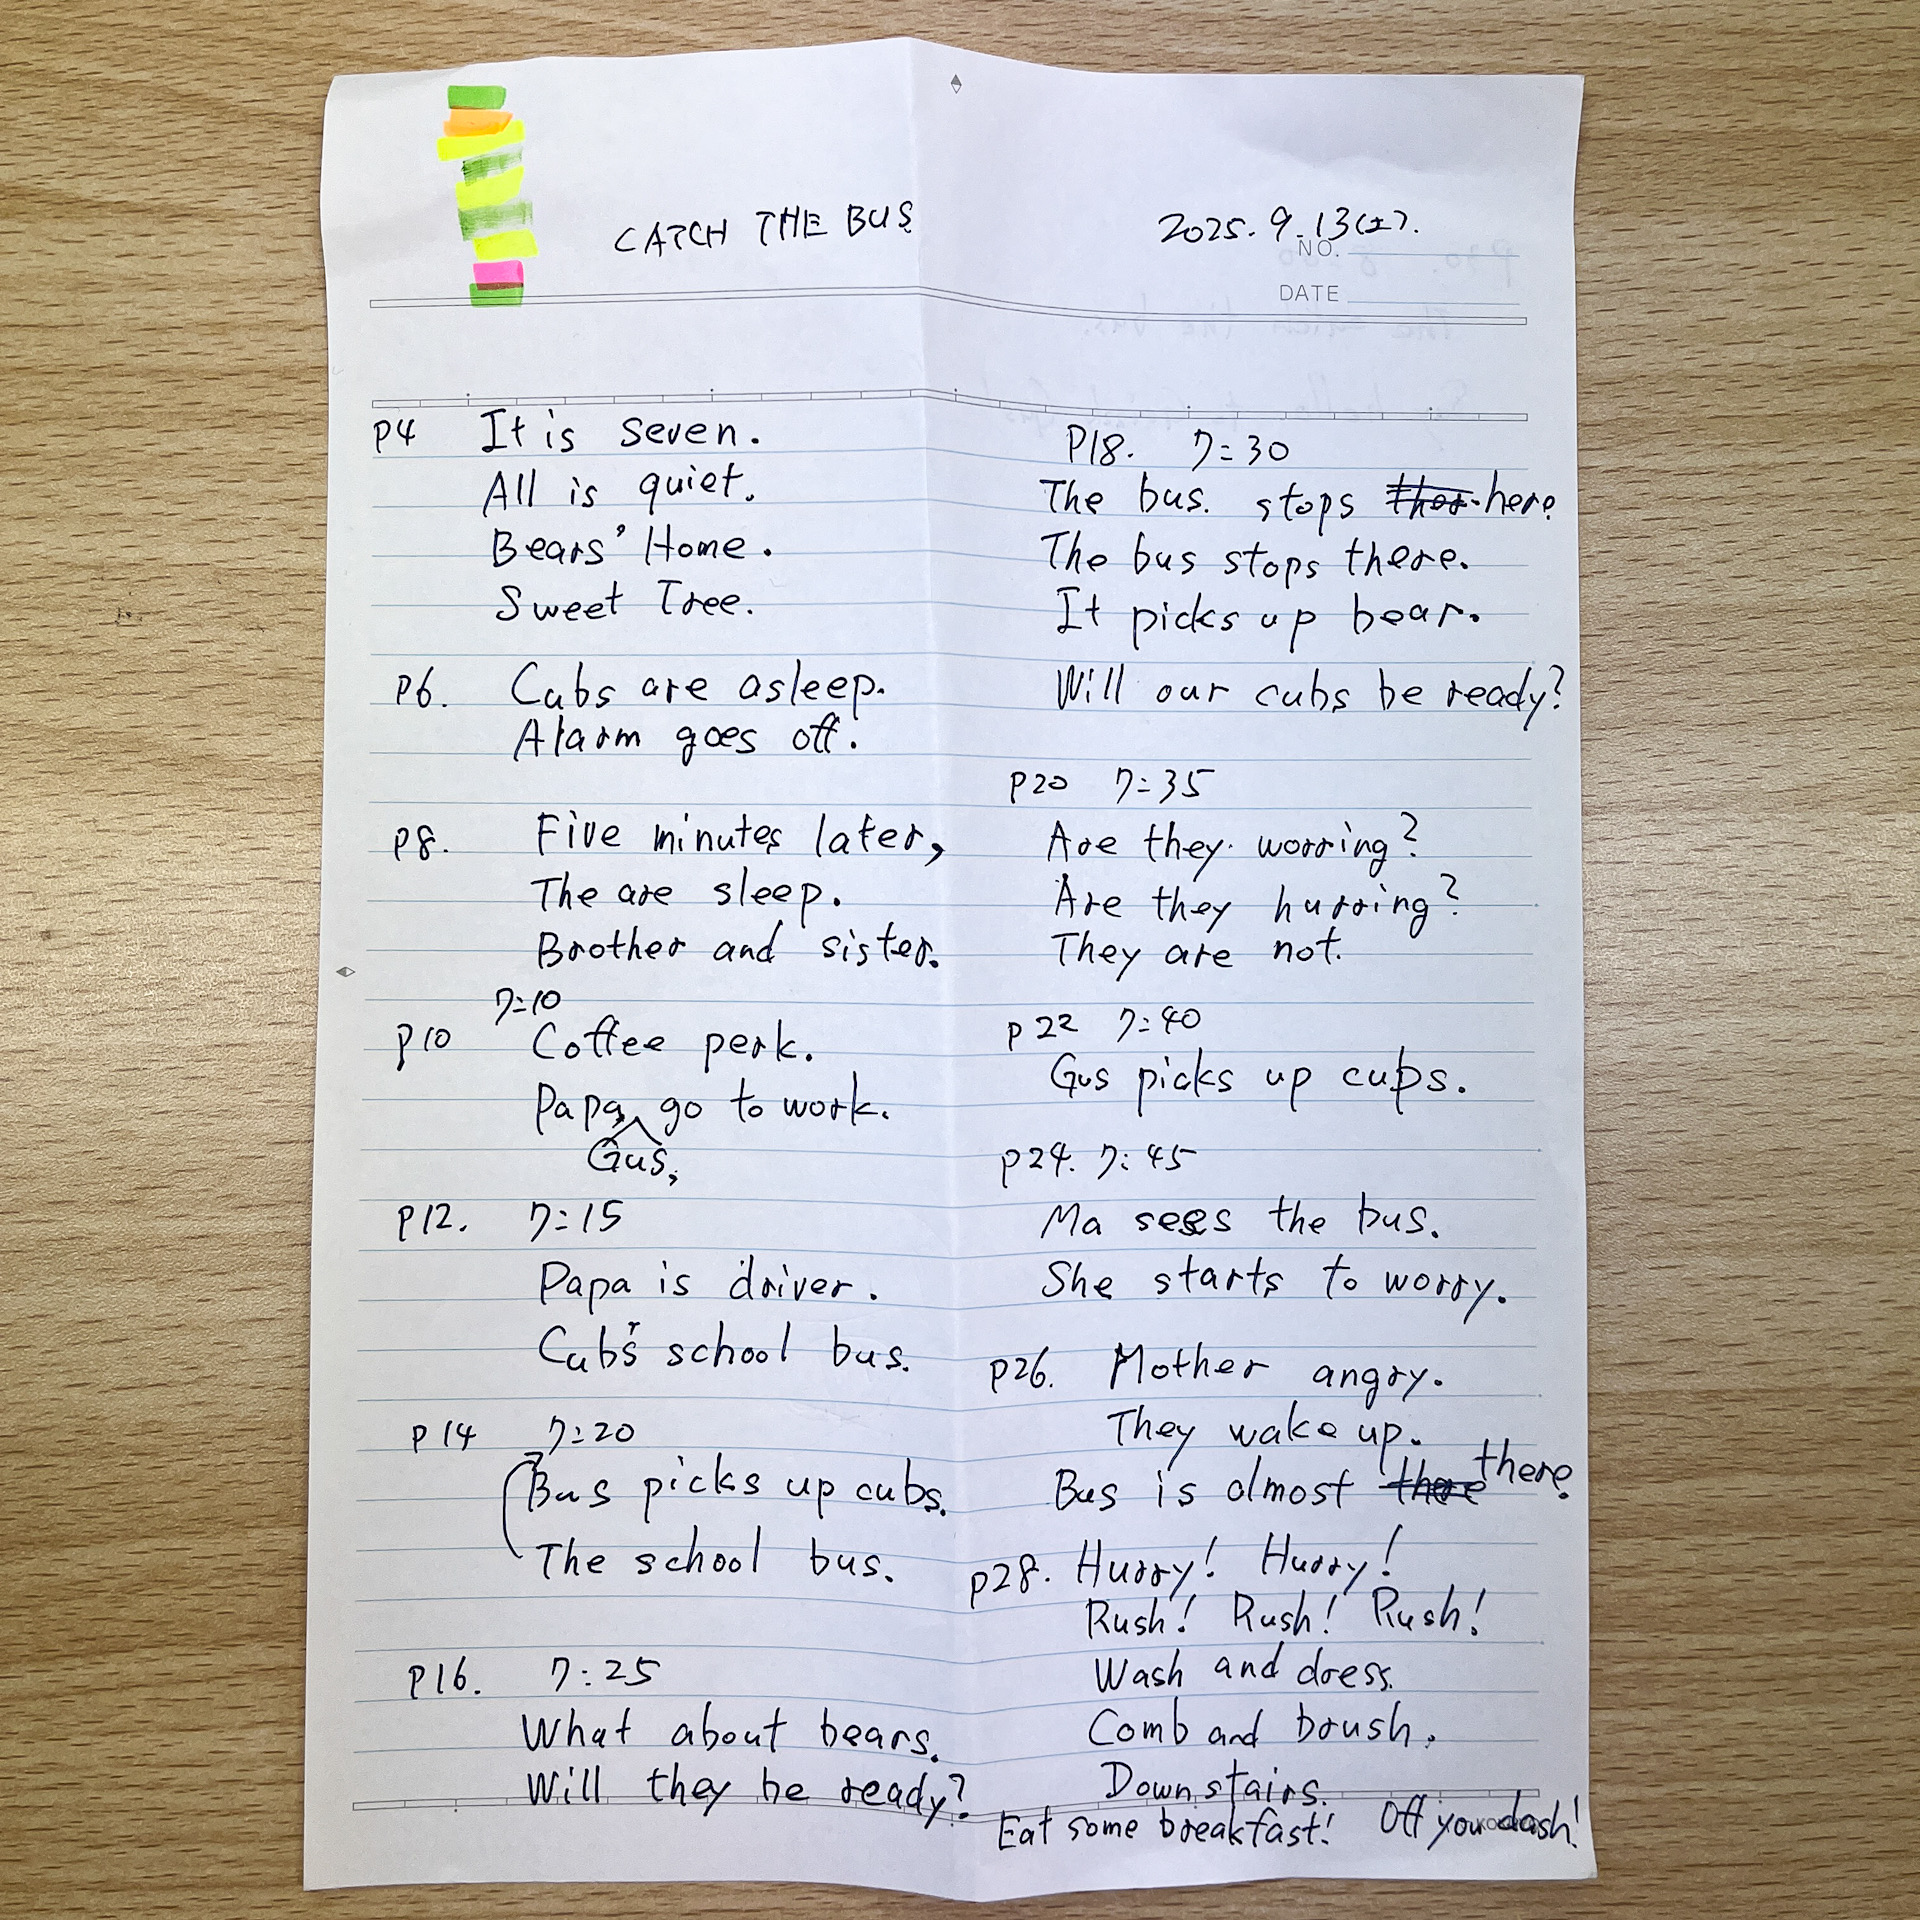 CATCH THE BUS
2025.9.13(土).
NO.
DATE
P4 It is seven.
All is quiet.
Bears' Home.
Sweet Tree.
P6. Cubs are asleep.
Alarm goes off.
P8. Five minutes later,
The are sleep.
Brother and sister.
7:10
P10 Coffee perk.
Papa, go to work.
Gus,
P12. 7:15
Papa is driver.
Cubs' school bus.
P14 7:20
Bus picks up cubs.
The school bus.
P16. 7:25
What about bears.
Will they be ready?
P18. 7:30
The bus. stops ther here.
The bus stops there.
It picks up bear.
Will our cubs be ready?
P20 7:35
Are they worring?
Are they hurring?
They are not.
P22 7:40
Gus picks up cubs.
P24. 7:45
Ma sees the bus.
She starts to worry.
P26. Mother angry.
They wake up.
Bus is almost there there.
P28. Hurry! Hurry!
Rush! Rush! Rush!
Wash and dress.
Comb and brush.
Down stairs.
Eat some breakfast! Off you dash!